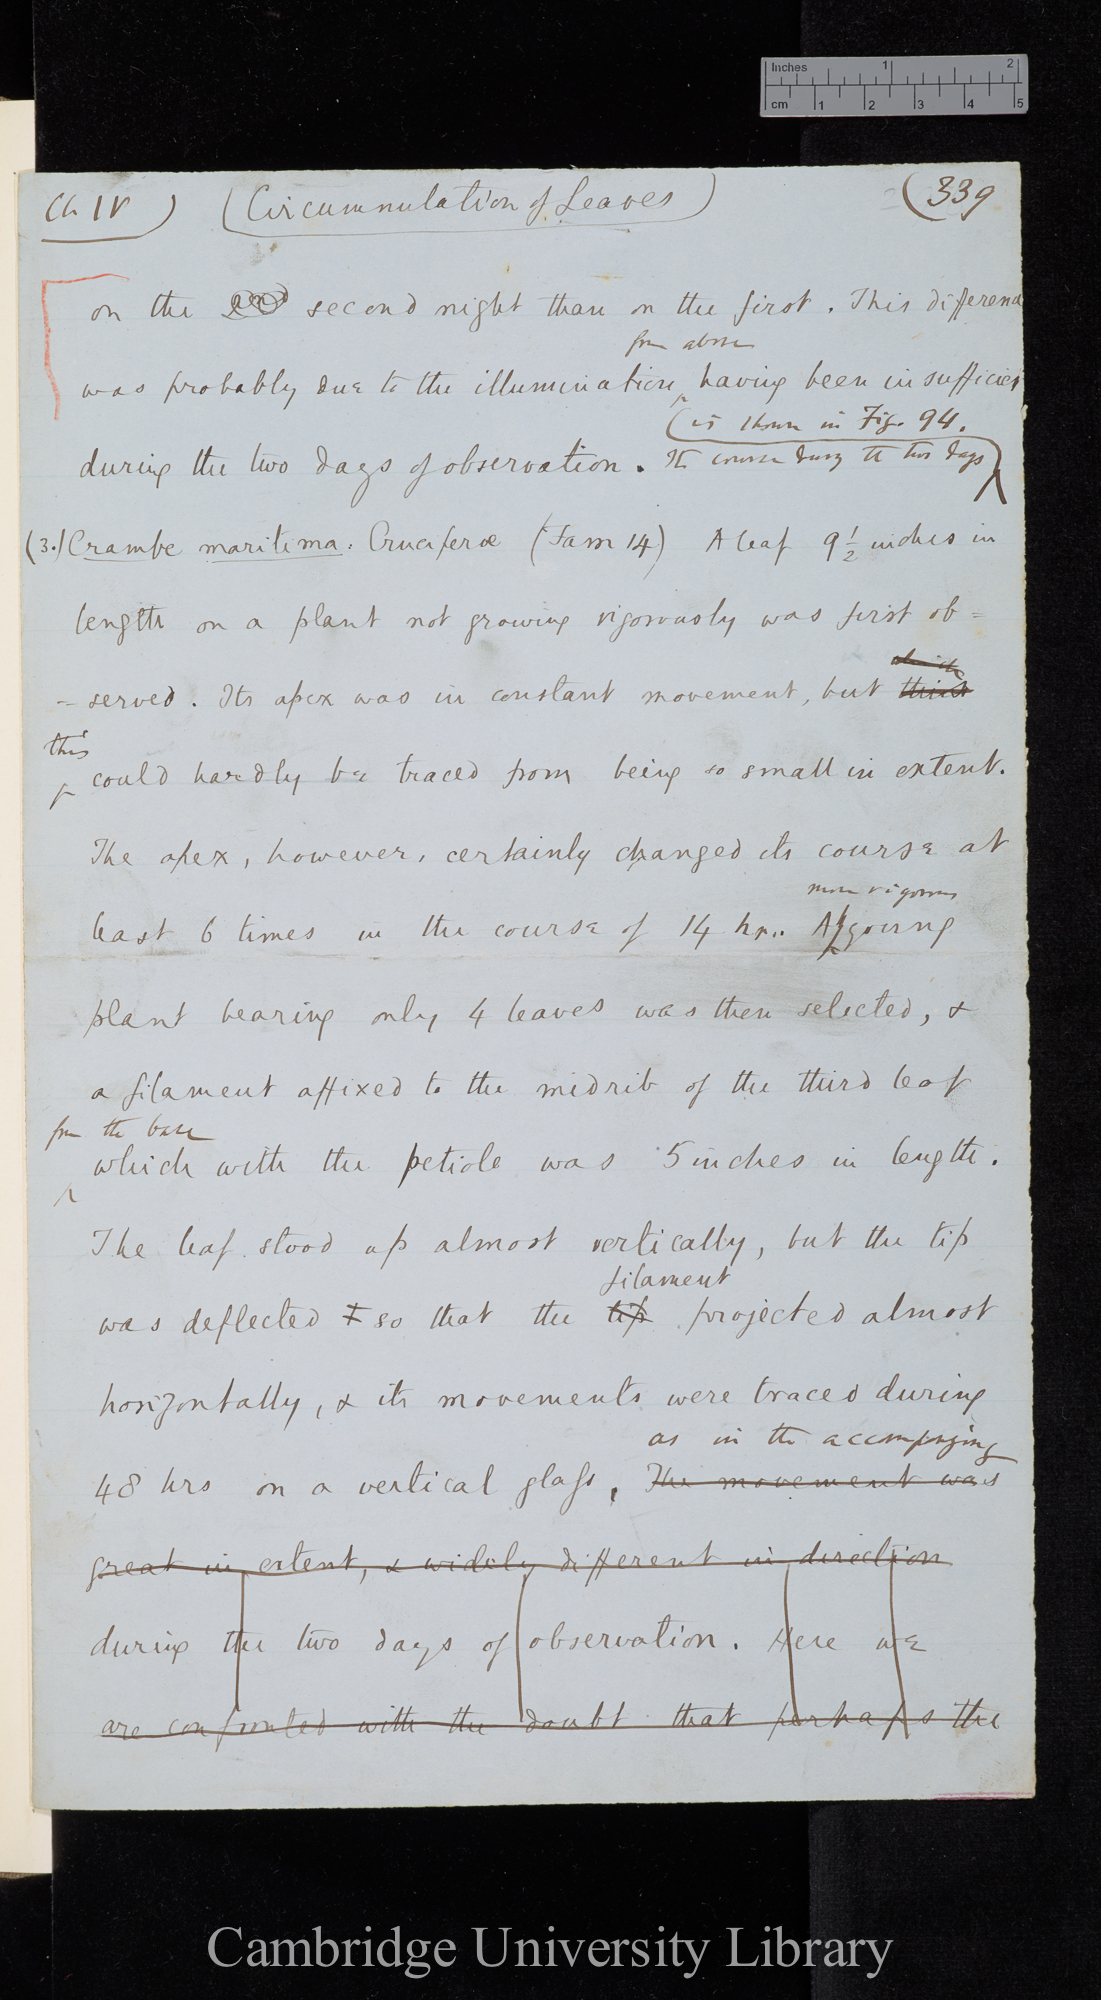 Inches 1 2
cm 1 2 3 4 5
Ch IV) (Circumnutation of Leaves) (339
on the and second night than on the first. This difference
from above
was probably due to the illumination having been insufficient
(is shown in Fig. 94.
during the two days of observation. Its course during the two days)
(3.) Crambe maritima: Cruciferæ (Fam 14) A leaf 9 1/2 inches in
length on a plant not growing vigorously was first ob=
which
=served. Its apex was in constant movement, but
this
could hardly be traced from being so small in extent.
The apex, however, certainly changed its course at
more vigorous
least 6 times in the course of 14 hrs. A young
plant bearing only 4 leaves was then selected, &
a filament affixed to the midrib of the third leaf
from the base
which with the petiole was 5 inches in length.
The leaf stood up almost vertically, but the tip
filament
was deflected & so that the tip projected almost
horizontally, & its movements were traced during
as in the accompanying
48 hrs on a vertical glass, The movement was
great in extent, & widely different in direction
during the two days of observation. Here we
are confronted with the doubt that perhaps the
Cambridge University Library